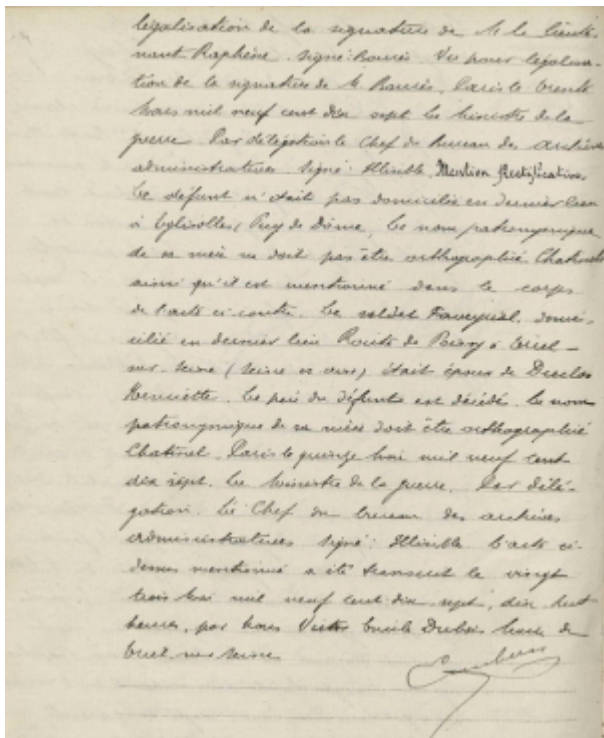 légalisation de la signature de M le lieute-
nant Raphène. Signé: Bourès. Vu pour légalisa-
tion de la signature de M Bourès, Paris le trente
mars mil neuf cent dix sept Le Ministre de la
guerre. Par délégation le Chef du Bureau des archives
administratives. Signé: Illisible. Mention Rectificative.
Le défunt n'était pas domicilié en dernier lieu
à Eglisolles, Puy de Dôme, Le nom patronymique
de sa mère ne doit pas être orthographié
ainsi qu'il est mentionné dans le corps
de l'acte ci-contre. Le soldat Faveyrial, domi-
cilié en dernier lieu Route de Poissy à Triel-
sur-Seine (Seine et oise) était époux de Duclos
Henriette. Le père du défunt est décédé. Le nom
patronymique de sa mère doit être orthographié
Chatinel. Paris le quinze Mai mil neuf cent
dix sept. Le Ministre de la guerre. Par délé-
gation. Le Chef du bureau des archives
administratives Signé: Illisible. L'acte ci-
dessus mentionné a été transcrit le vingt
trois Mai mil neuf cent dix sept, dix huit
heures, par Nous Victor Emile Dubois Maire de
Triel-sur-Seine